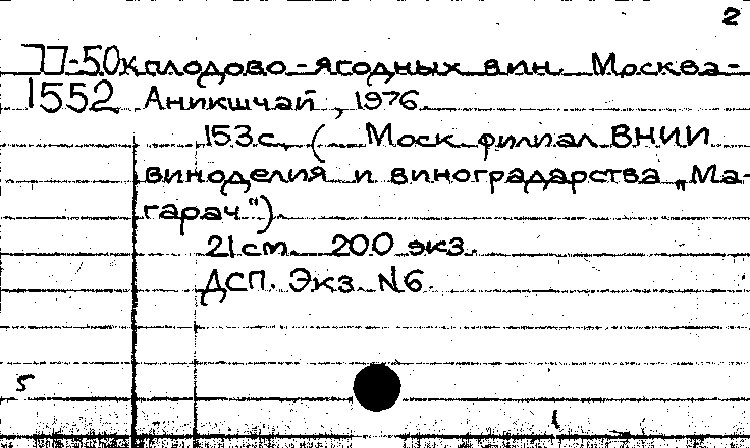 2
П-50к плодово-ягодных вин. Москва-
1552 Аникшчай, 1976.
153 с. ( Моск филиал ВНИИ
виноделия и виноградарства „Ма-
гарач“).
21 см. 200 экз.
ДСП. Экз. N6.
5
1